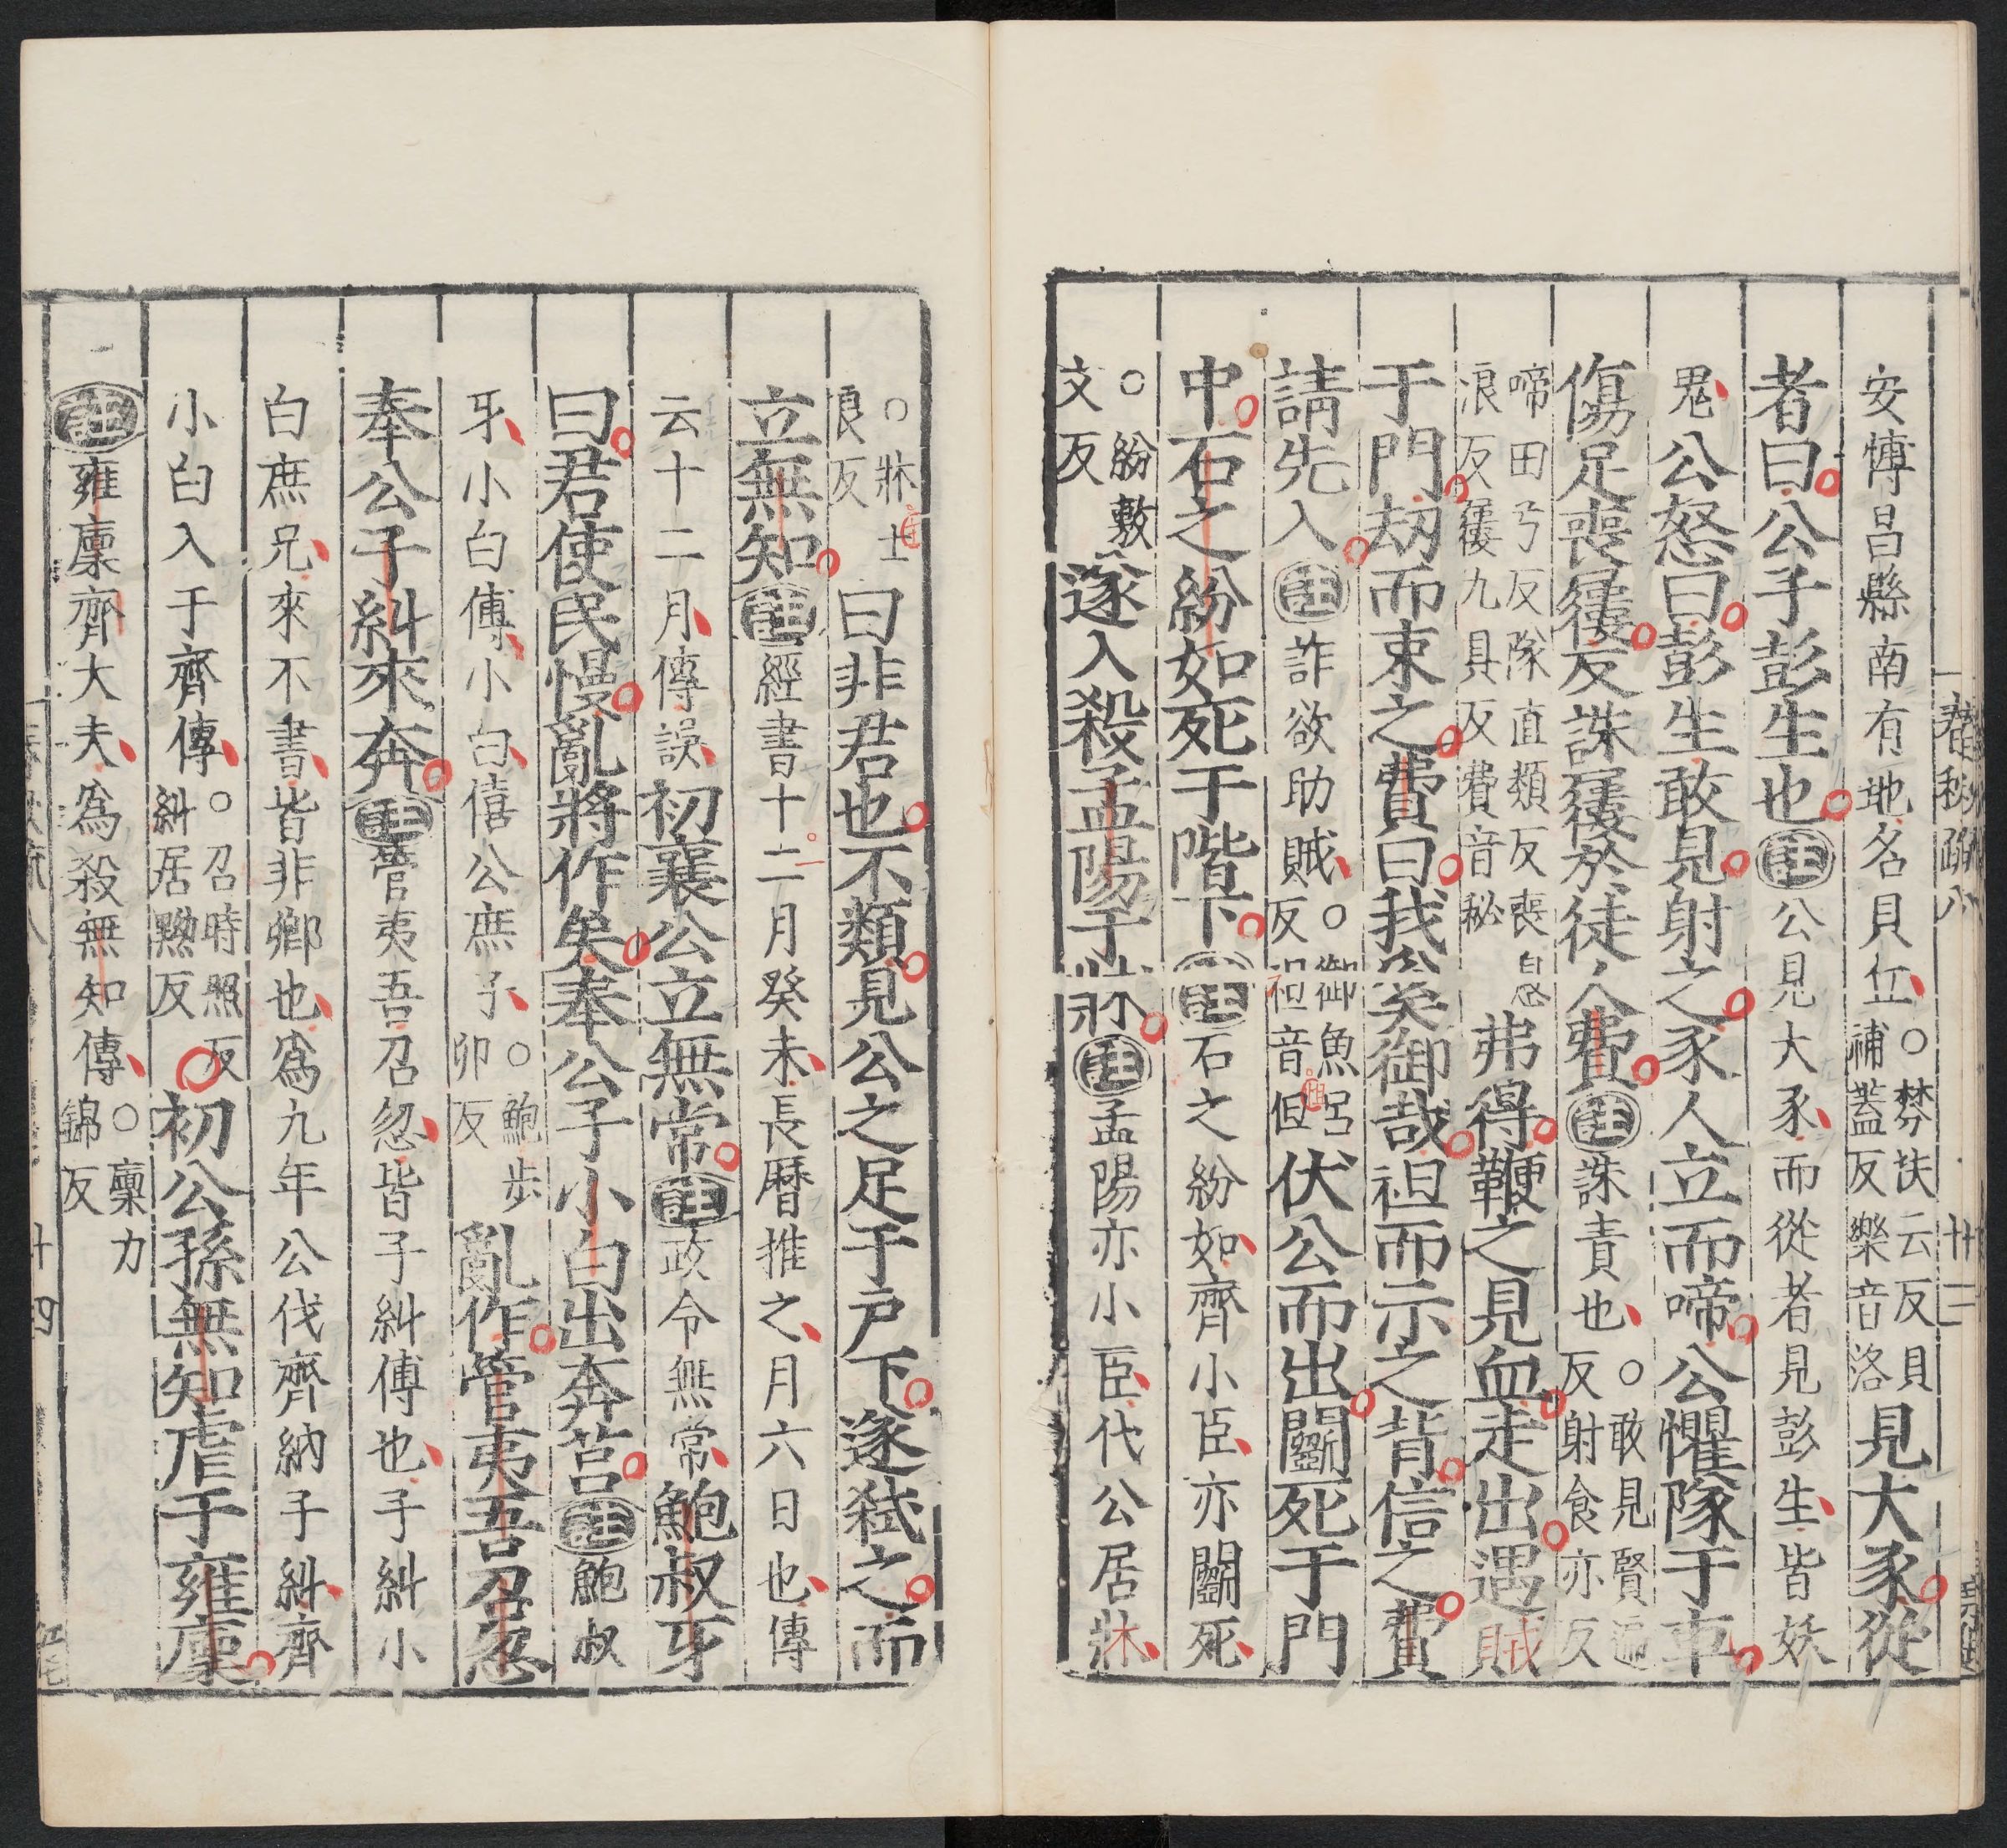 安博昌縣南有地名貝丘○棼扶云反貝補蓋反樂音洛見大豕從
者曰公子彭生也註公見大豕而從者見彭生皆妖
鬼公怒曰彭生敢見射之豕人立而啼公懼隊于車
傷足喪屨反誅屨於徒人費註誅責也○敢見賢遍反射食亦反
啼田兮反隊直類反喪息浪反屨九具反費音秘弗得鞭之見血走出遇賊
于門劫而束之費曰我奚御哉袒而示之背信之費
請先入註詐欲助賊○御魚呂反袒音但伏公而出鬬死于門
中石之紛如死于階下註石之紛如齊小臣亦鬬死
○紛敷文反遂入殺孟陽于牀註孟陽亦小臣代公居牀
○牀士良反曰非君也不類見公之足于戶下遂弒之而
立無知註經書十一月癸未長曆推之月六日也傳
云十二月傳誤初襄公立無常註政令無常鮑叔牙
曰君使民慢亂將作矣奉公子小白出奔莒註鮑叔
牙小白傅小白僖公庶子○鮑步卯反亂作管夷吾召忽
奉公子糾來奔註管夷吾召忽皆子糾傅也子糾小
白庶兄來不書皆非卿也爲九年公伐齊納子糾齊
小白入于齊傳○召時照反糾居黝反○初公孫無知虐于雍廩
註雍廩齊大夫爲殺無知傳○廩力錦反
春秋疏八
十四